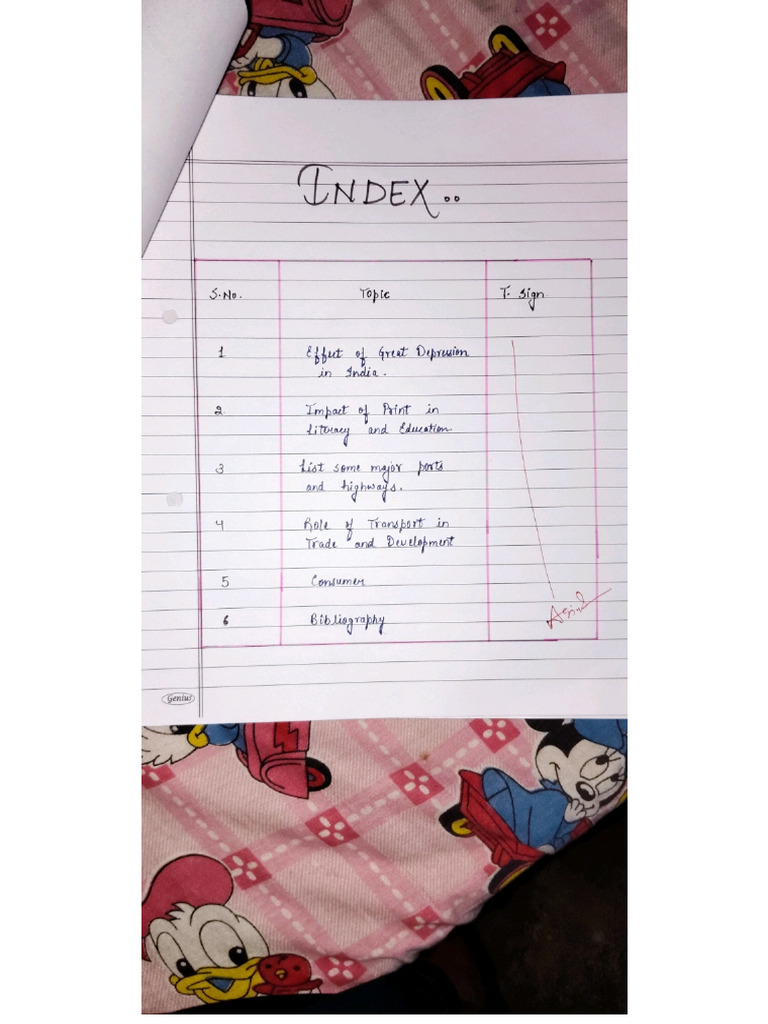 INDEX..
S.No. Topic T. Sign
1 Effect of Great Depression
in India.
2 Impact of Print in
Literacy and Education
3 List some major ports
and highways.
4 Role of Transport in
Trade and Development
5 Consumer
6 Bibliography
Genius